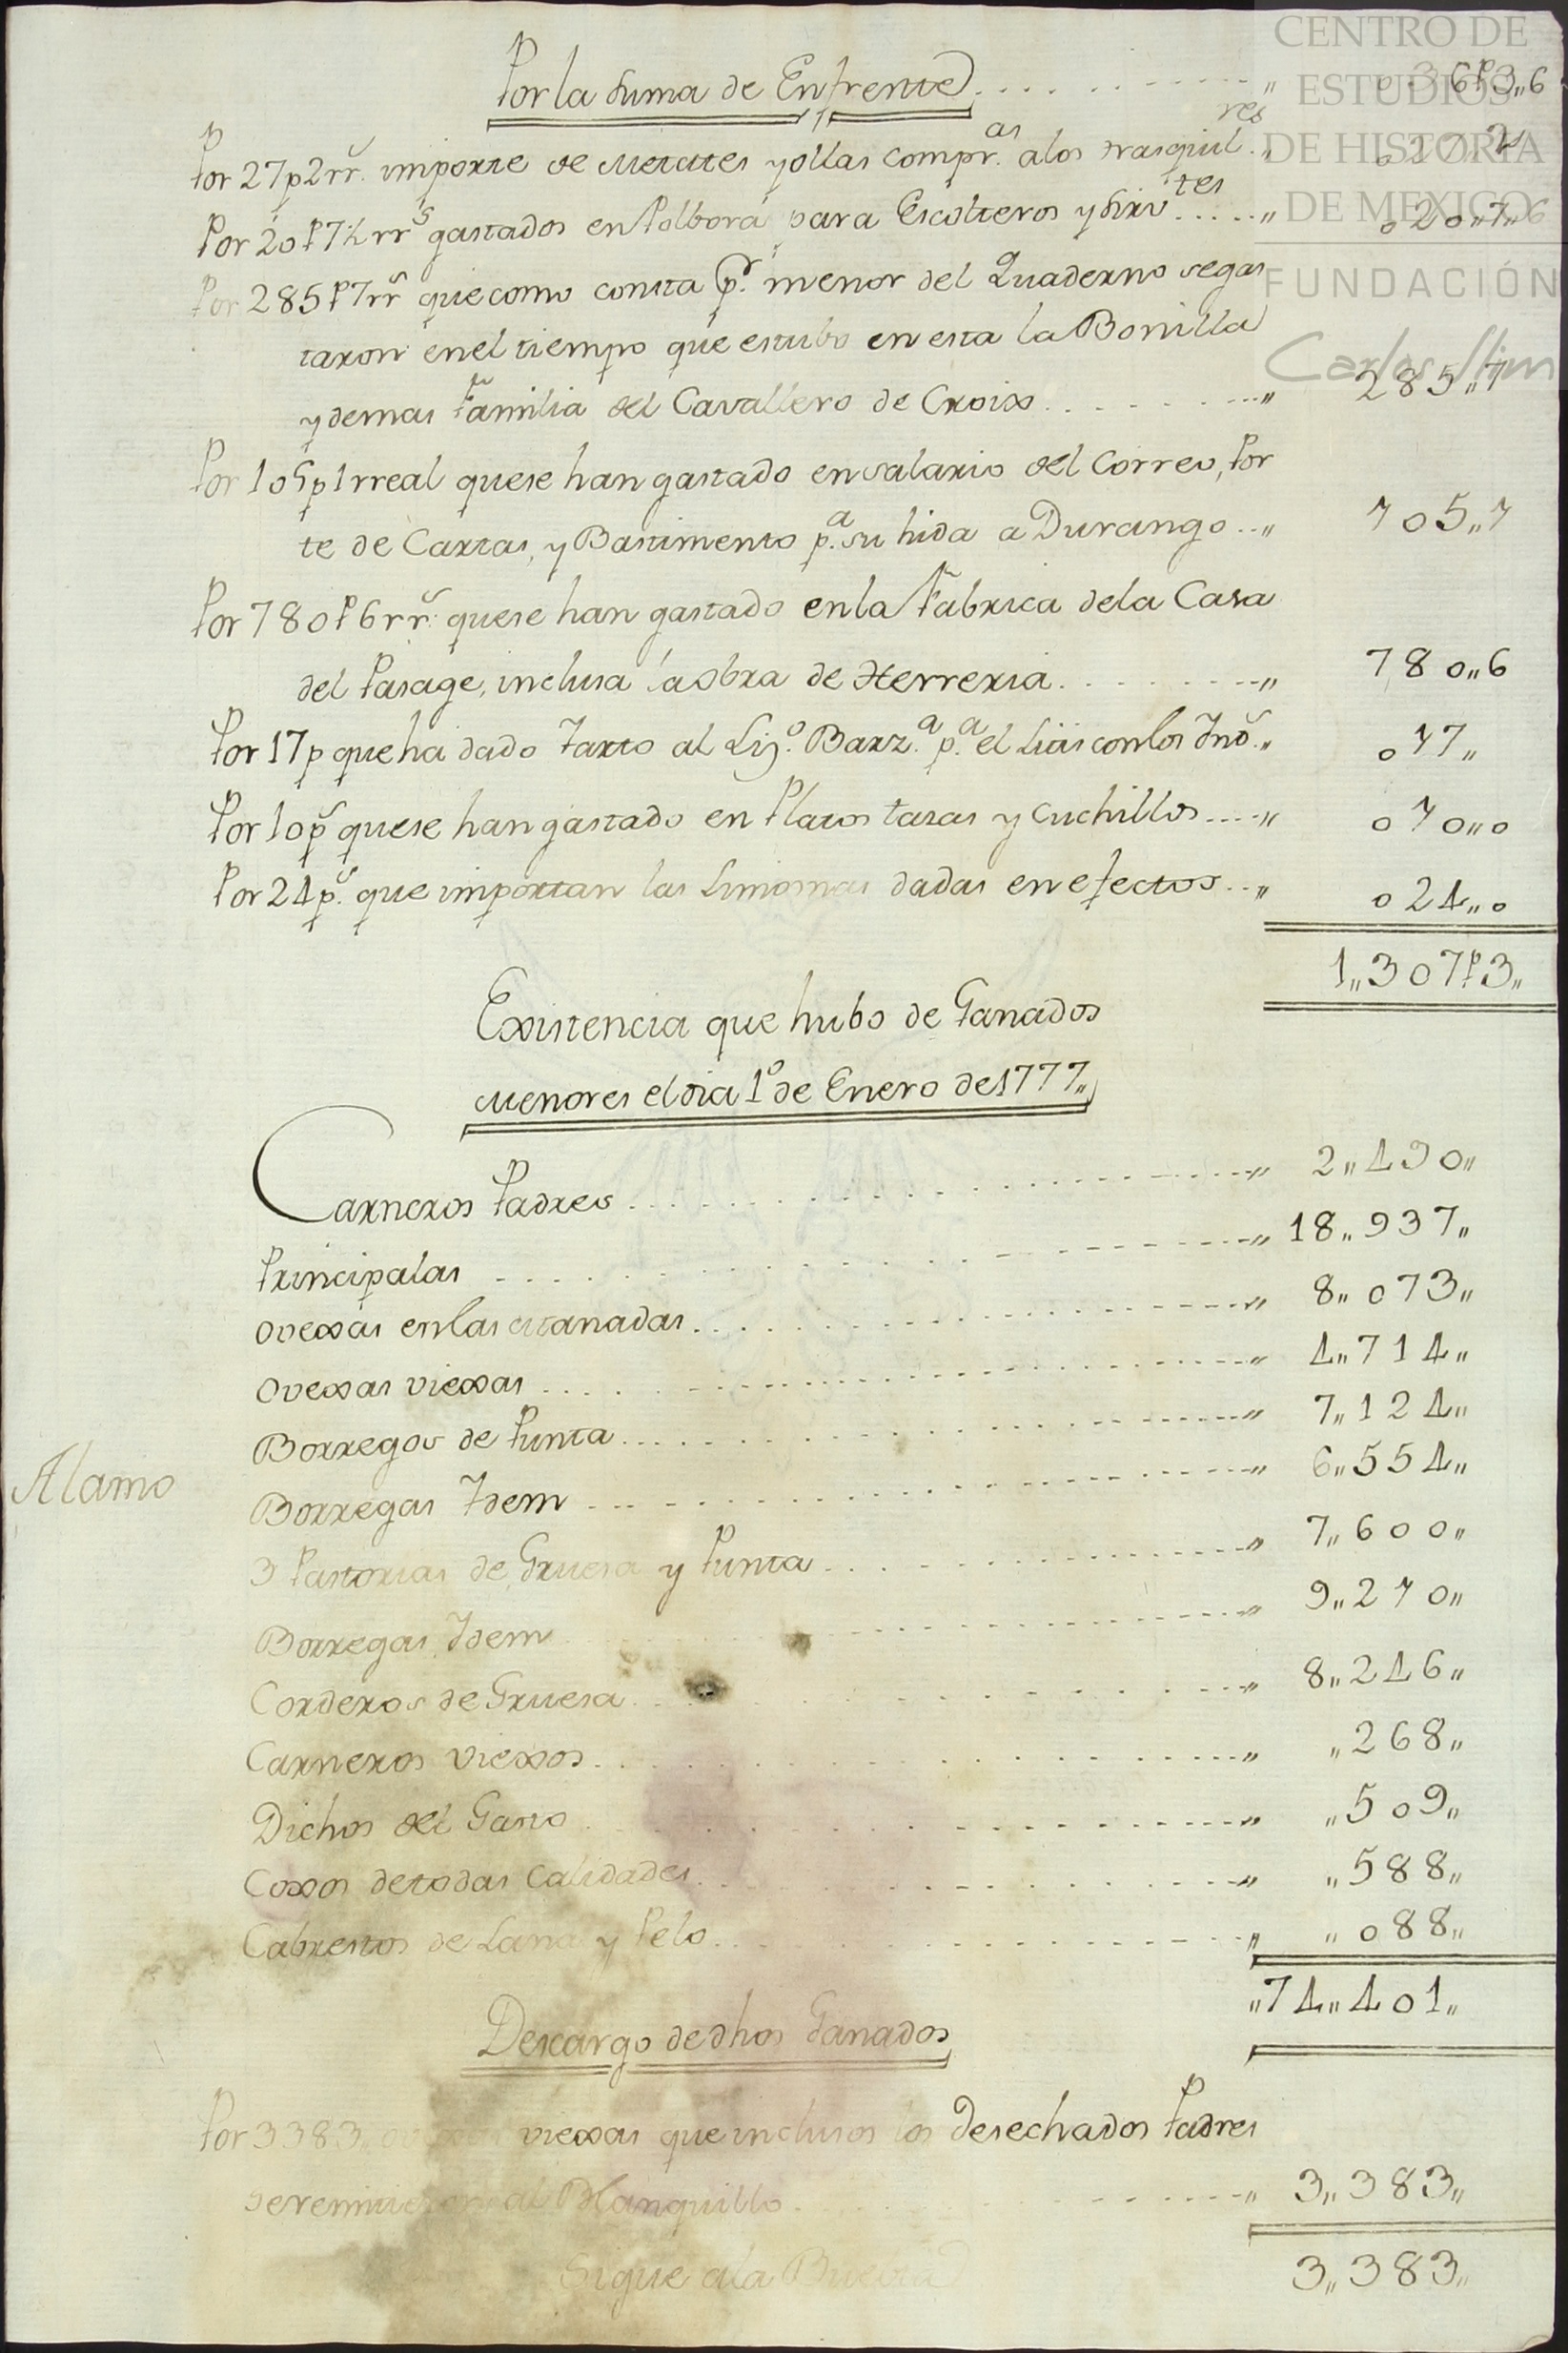 CENTRO DE
ESTUDIOS
DE HISTORIA
DE MEXICO
FUNDACIÓN
Carlos Slim
Por la suma de Enfrente .......... „ 036p3„6
Por 27p2rrs. importe de Metates y ollas compr.as a los trasquilres. „ 027„2
Por 20p7½rrs gastados en Polbora para Escolteros y Sirvtes ..... „ 020„7„6
Por 285p7rrs que como consta pr. menor del Quaderno se gas
taron en el tiempo que estubo en esta la Bonilla
y demas Familia del Cavallero de Croix .......... „ 285„7
Por 105p1rreal que se han gastado en salario del Correo, Por
te de Cartas, y Bastimento p.a su hida a Durango ... „ 105„1
Por 780p6rrs. que se han gastado en la Fabrica de la Casa
del Pasage, inclusa la Obra de Herreria .......... „ 780„6
Por 17p que ha dado Tarto al Liz.o Barz.a p.a el con los Ynds. „ 017„
Por 10ps que se han gastado en Platos tasas y Cuchillos ..... „ 010„0
Por 24ps. que importan las Limosnas dadas en efectos ... „ 024„0
1„307p3„
Existencia que hubo de Ganados
Menores el dia 1o de Enero de 1777„
Carneros Padres .......... „ 2„490„
Principalas .......... „ 18„937„
Ovexas en las atanadas .......... „ 8„073„
Ovexas viexas .......... „ 4„714„
Borregos de Punta .......... „ 7„124„
Alamo
Borregas Ydem .......... „ 6„554„
3 Pastorias de Gruesa y Punta .......... „ 7„600„
Borregas Ydem .......... „ 9„210„
Corderos de Gruesa .......... „ 8„246„
Carneros viexos .......... „ „268„
Dichos del Gasto .......... „ „509„
Coxos de todas Calidades .......... „ „588„
Cabrestos de Lana y Pelo .......... „ „088„
„74„401„
Descargo de dhos Ganados
Por 3383„ viexas que inclusos los desechados Padres
se remitieron al Blanquillo .......... „ 3„383„
Sigue a la Buelta 3„383„